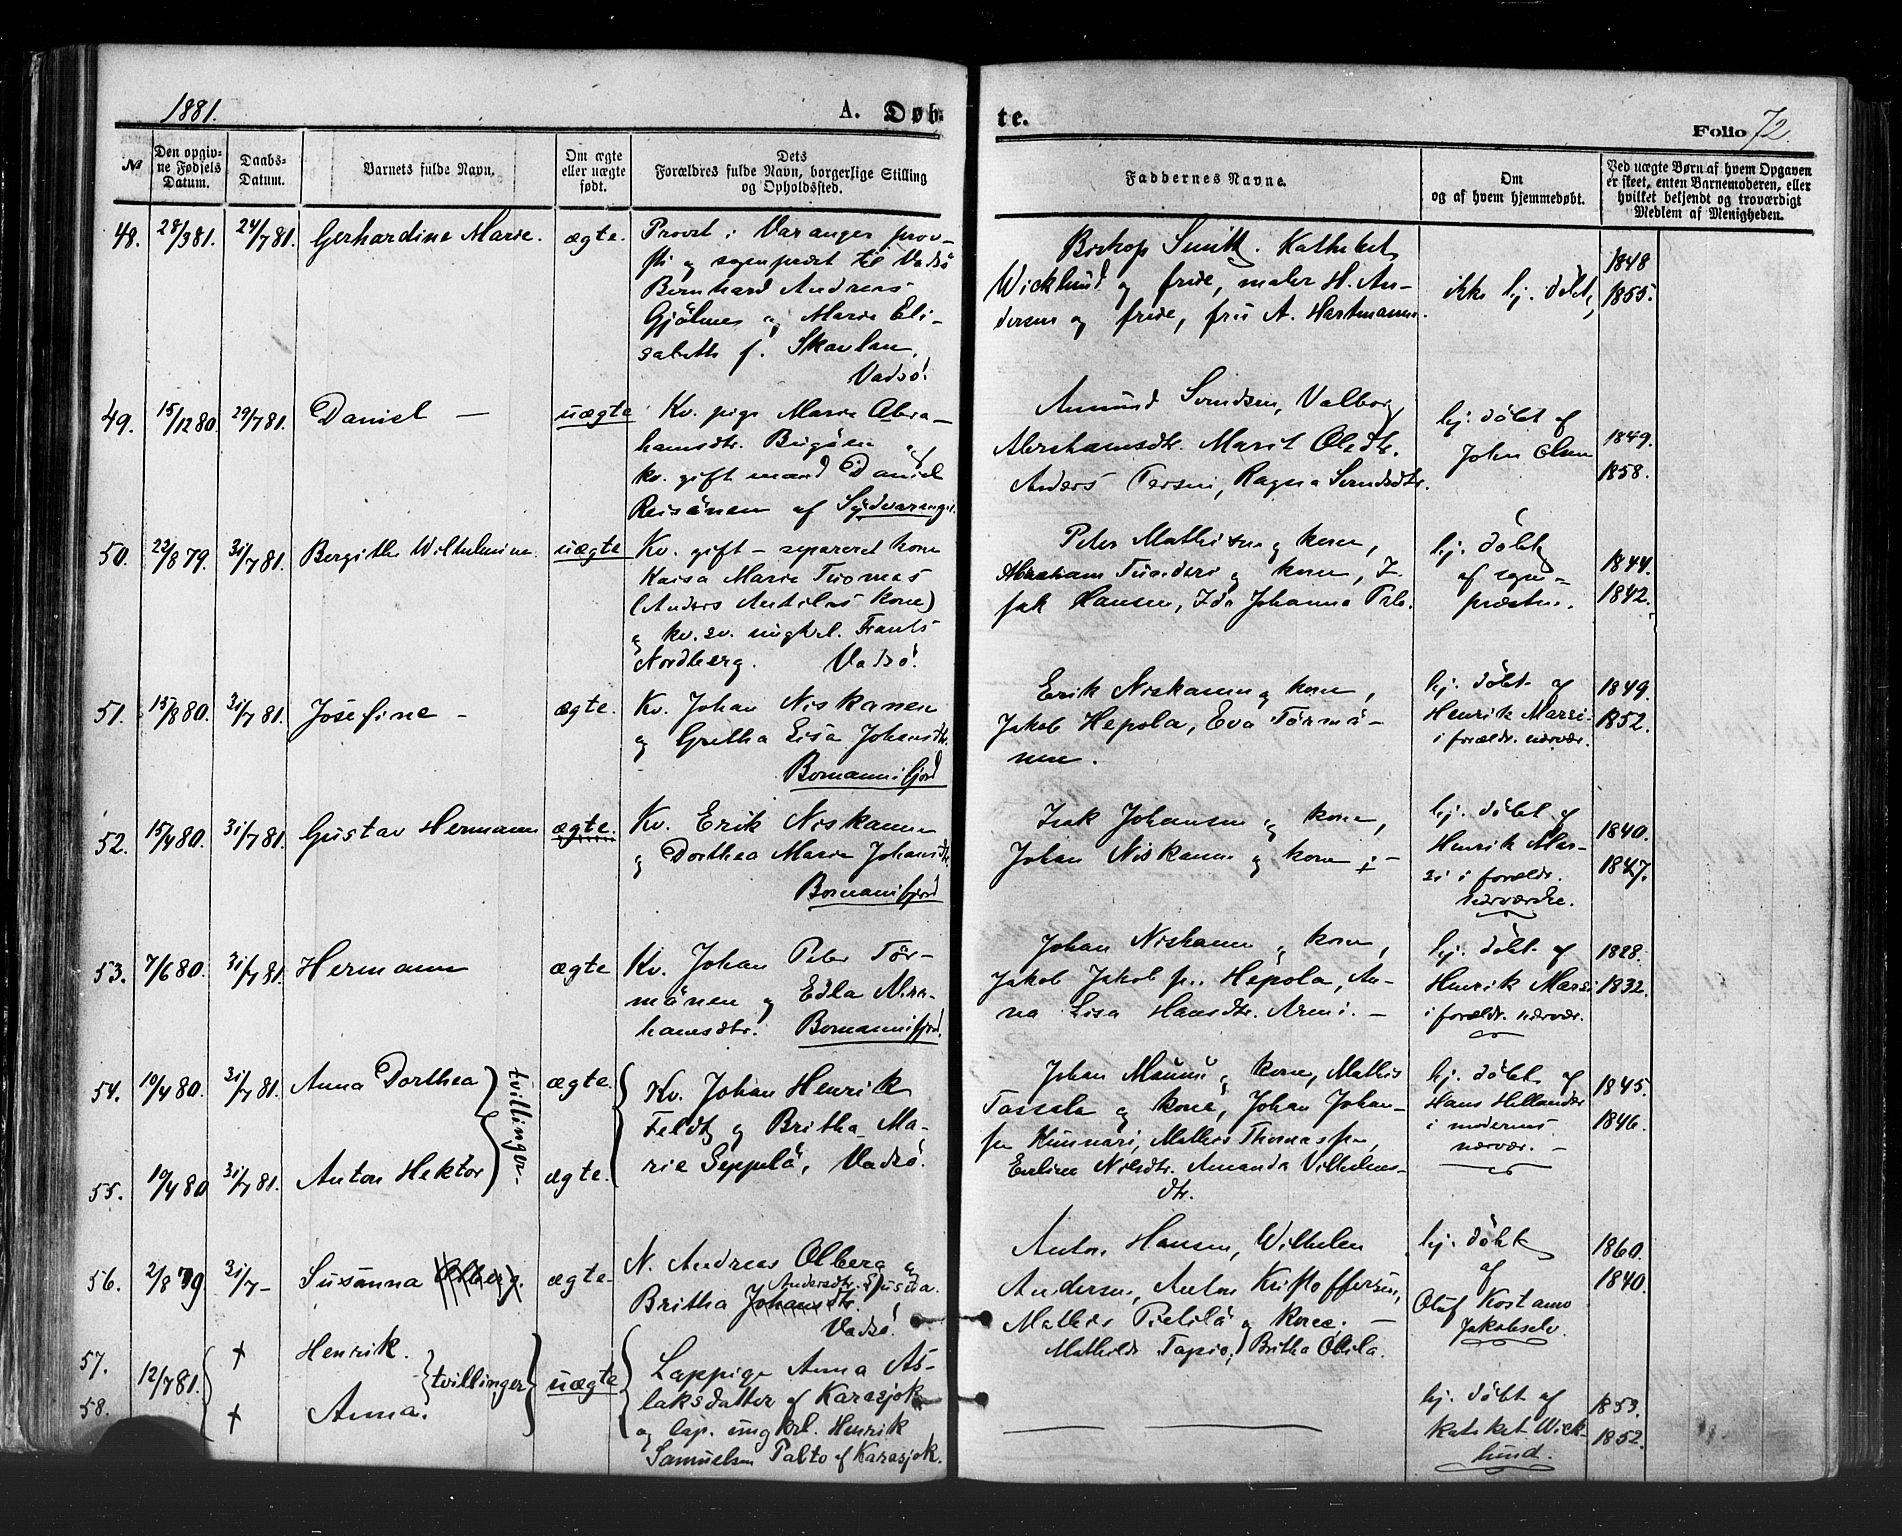 1881.
A. Døb-
te.
Folio 72.
No
Den opgiv-
ne Fødsels
Datum.
Daabs-
Datum.
Barnets fulde Navn.
Om ægte
eller uægte
født.
Dets
Forældres fulde Navn, borgerlige Stilling
og Opholdssted.
Faddernes Navne.
Om
og af hvem hjemmedøbt.
Ved uægte Børn af hvem Opgaven
er skeet, enten Barnemoderen, eller
hvilket bekjendt og troværdigt
Medlem af Menigheden.
48. 28/3 81. 24/7 81. Gerhardine Marie. ægte.
Provst i Varanger prov-
sti og sognepræst til Vadsö
Bernhard Andreas
Gjölmes og Marie Eli-
sabeth f. Skavlan.
Vadsö.
Biskop Smitt. Kathekt
Wicklund og frue, maler H. An-
dersen og frue, frü A. Hartmann.
ikke hj. döbt,
1848
1855.
49. 15/12 80. 29/7 81. Daniel — uægte
Kv. pige Marie Abra-
hamsdtr. Bugöen og
kv. gift mand Daniel
Reisänen af Sydvaranger.
Amund Svendsen, Valborg
Abrahamsdtr. Marit Olsdtr.
Anders Persen, Ragna Svendsdtr.
hj. döbt af
John Olsen
1849.
1858.
50. 23/8 79. 31/7 81. Bergitha Wilhelmine. uægte
Kv. gift — separeret kone
Kaisa Marie Thomas
(Anders Antilas kone)
og kv. sv. ungkrl. Frants
Nordberg. Vadsö.
Peter Mathisen og kone,
Abraham og kone, I-
sak Hansen, Ida Johanna
hj. döbt
af sogne-
præsten.
1844.
1842.
51. 15/8 80. 31/7 81. Josefine — ægte.
Kv. Johan Niskanen
og Gretha Lisa Johansdtr.
Bomannifjord
Erik Niskanen og kone,
Jakob Hepola, Eva Törmä-
nen.
hj. döbt af
Henrik Marsi
i forældr. nærvær.
1849.
1852.
52. 15/4 80. 31/7 81. Gustav Hermann ægte.
Kv. Erik Niskanen
og Dorthea Marie Johansdtr.
Bomannifjord
Isak Johansen og kone,
Johan Niskanen og kone; —
hj. döbt af
Henrik Mar-
si i forældr.
nærværelse.
1840.
1847.
53. 7/6 80. 31/7 81. Hermann ægte
Kv. Johan Peter Tör-
mänen og Edla Abra-
hamsdtr. Bomannifjord.
Johan Niskanen og kone,
Jakob Jakobsen Hepola, An-
na Lisa Hansdtr. Armi. —
hj. döbt af
Henrik Marsi
i forældr. nærvær.
1828.
1832.
54. 10/4 80. 31/7 81. Anna Dorthea ægte.
tvillinger.
Kv. Johan Henrik
Feldt og Britha Ma-
rie Seppelä, Vadsö.
55. 10/4 80 31/7 81. Anton Hektor ægte.
Johan Maunu og kone, Mathis
Tassela og kone, Johan Johan-
sen Kunnari, Mathis Thomassen,
Nilsdtr. Amanda Vilhelms-
dtr.
hj. döbt af
Hans Hellander
i moderens
nærvær. —
1845.
1846.
56. 2/8 79 31/7 — Susanna Olberg. ægte.
N. Andreas Olberg og
Andersdtr.
Britha Johansdtr.
Vadsö.
Anton Hansen, Wilhelm
Andersen, Anton Kristoffersen,
Mathis Pietilä og kone. —
Mathilde Tapio, Britha Ollila.
hj. döbt
af
Oluf Kostamo
Jakobselv.
1860.
1840.
57. 12/7 81. † Henrik.
58. † Anna. tvillinger uægte
Lappige Anna As-
laksdatter af Karasjok
og lap. ungkrl. Henrik
Samuelsen Palto af Karasjok.
hj. döbt af
katekat Wick-
lund.
1853.
1852.